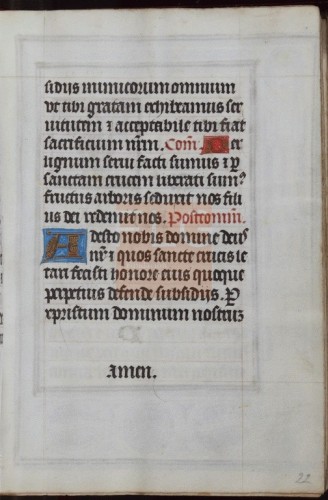 sidijs inimicorum omnium
vt tibi gratam exhibeamus ser
uitutem ⁊ acceptabile tibi fiat
sacrificium nrm̄. Com̄. Per
lignum serui facti sumus ⁊ ꝑ
sanctam crucem liberati sumꝰ
fructus arboris seduxit nos fili
us dei redemit nos. Postcomm̄.
Adesto nobis domine deus
nr̄ ⁊ quos sancte crucis le
tari fecisti honore eius quoque
ꝑpetuis defende subsidijs. P
xpristum dominum nostrum
Amen.
22